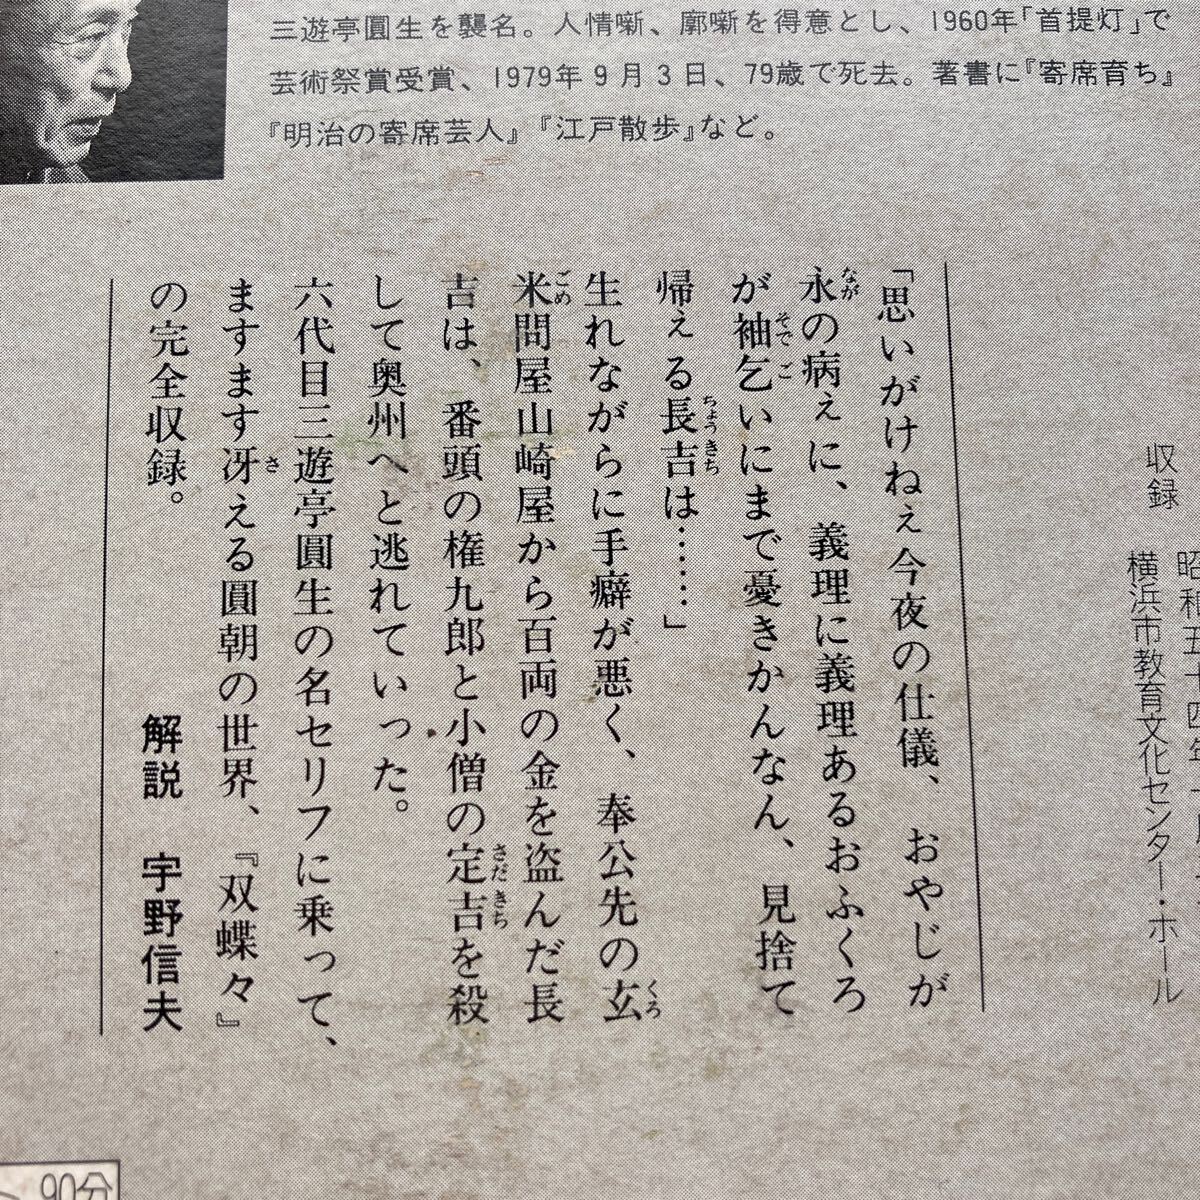 三遊亭圓生を襲名。人情噺、廓噺を得意とし、1960年「首提灯」で
芸術祭賞受賞、1979年9月3日、79歳で死去。著書に『寄席育ち』
『明治の寄席芸人』『江戸散歩』など。
収録
横浜市教育文化センター・ホール
「思いがけねぇ今夜の仕儀、おやじが
永の病ぇに、義理に義理あるおふくろ
が袖乞いにまで憂きかんなん、見捨て
帰ぇる長吉は……」
生れながらに手癖が悪く、奉公先の玄
米問屋山崎屋から百両の金を盗んだ長
吉は、番頭の権九郎と小僧の定吉を殺
して奥州へと逃れていった。
六代目三遊亭圓生の名セリフに乗って、
ますます冴える圓朝の世界、『双蝶々』
の完全収録。
解説 宇野信夫
90分